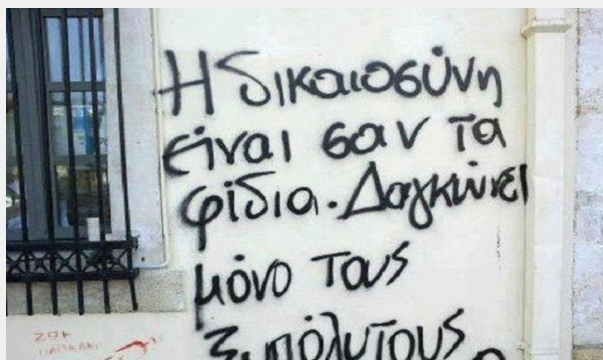 Η δικαιοσύνη
είναι σαν τα
φίδια. Δαγκώνει
μόνο τους
ξυπόλυτους
ΖΩΗ